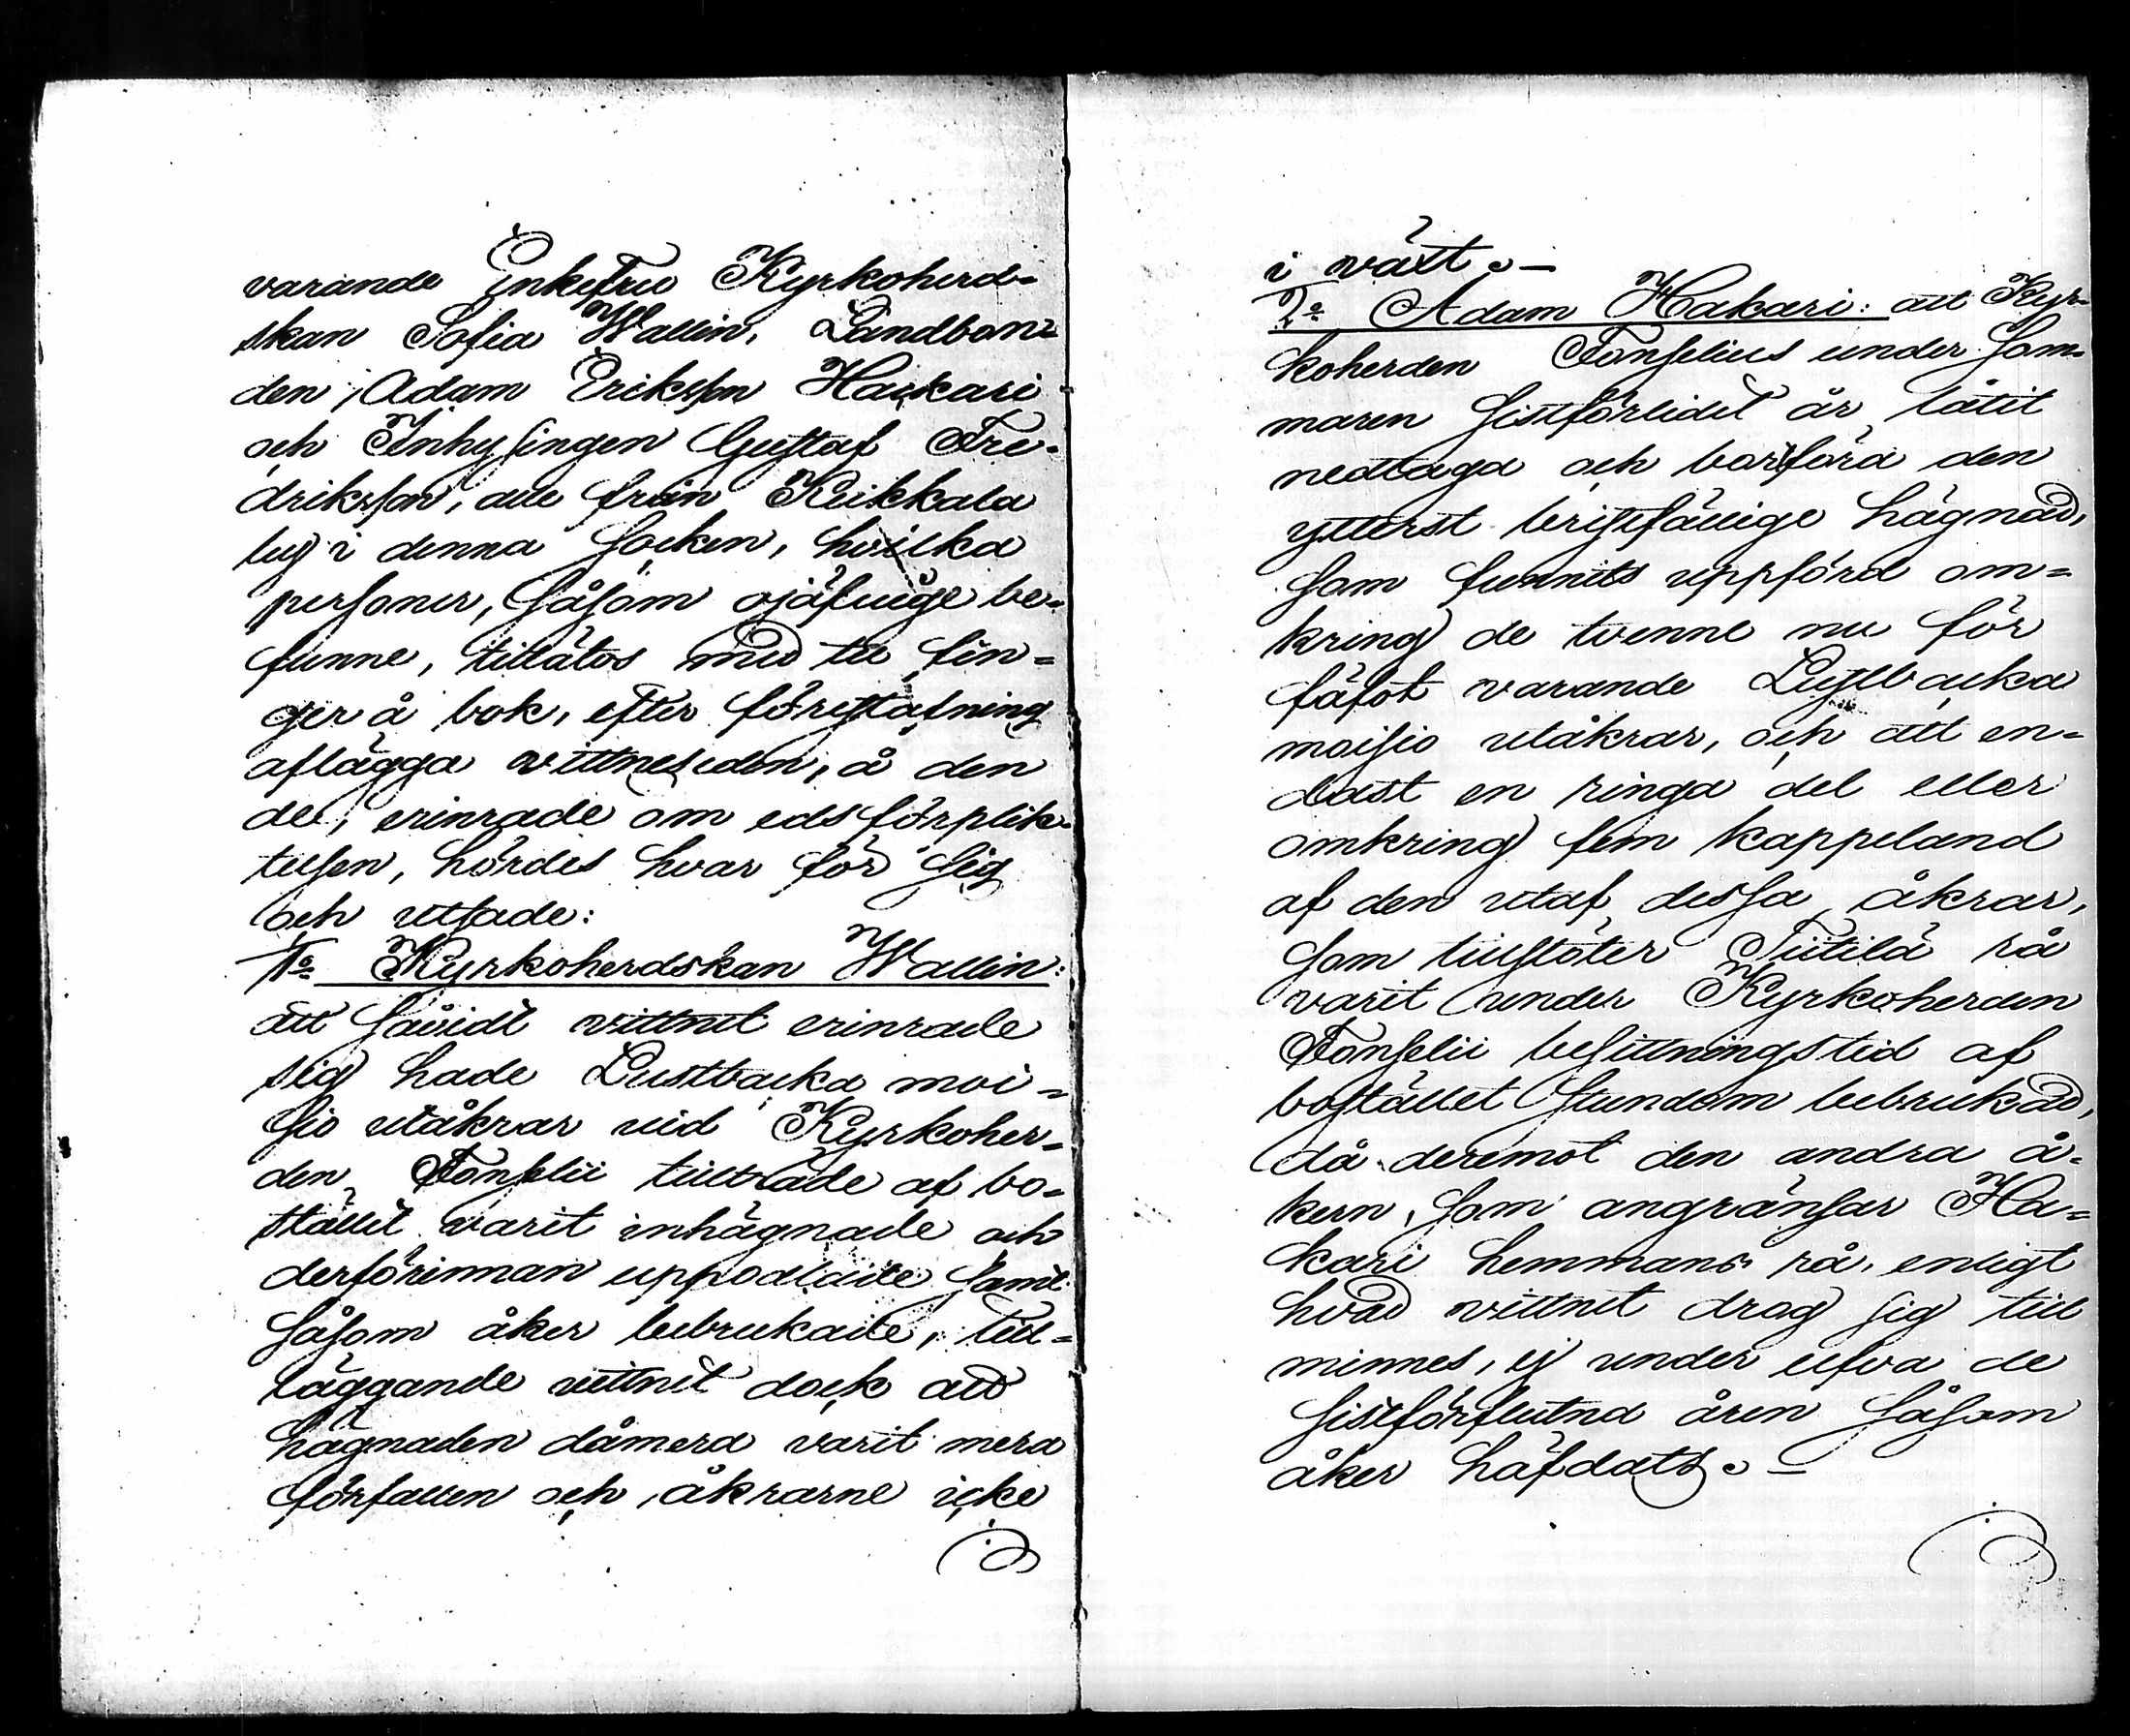 varande Enkefru Kyrkoherd-
skan Sofia Wallin, Landbon-
den Adam Eriksson Hakkari
och Inhysingen Gustaf Fre-
driksson, alle från Keikkala
by i denna Socken, hvilka
personer, såsom ojäfvige be-
funne, tillätos med tu fin-
ger å bok, efter förestafning
aflägga vittneseden, å den
de, erinrade om edsförplik-
telsen, hördes hvar för sig
och utsade:
1o Kyrkoherdskan Wallin:
att såvidt vittnet erinrade
sig hade Lustbacka moi-
sio utåkrar vid Kyrkoher-
den Fonselii tillträde af bo-
stället varit inhägnade och
derförinnan uppodlade samt
såsom åker bebrukade, till-
läggande vittnet dock att
hägnaden dåmera varit mera
förfallen och åkrarne icke
i växt.-
2o Adam Hakari: att Kyr-
koherden Fonselius under Som-
maren sistförlidet år låtit
nedtaga och bortföra den
ytterst bristfällige hägnad,
som funnits uppförd om-
kring de tvenne nu för
fäfot varande Lustbacka
moisio utåkrar, och att en-
dast en ringa del eller
omkring fem kappeland
af den utaf dessa åkrar,
som tillstöter Tiitilä rå
varit under Kyrkoherden
Fonselii besittningstid af
bostället stundom bebrukad,
då deremot den andra å-
kern, som angränsar Ha-
kari hemmans rå, enligt
hvad vittnet drog sig till
minnes, ej under elfva de
sistförflutna åren såsom
åker häfdats.-